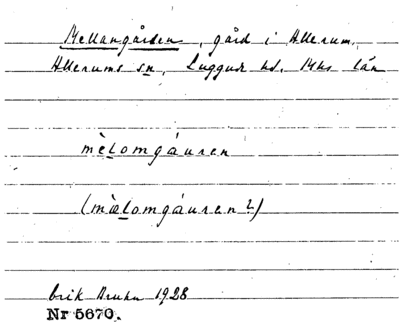 Mellangården, gård i Allerum,
Allerums sn, Luggude hd. Mhs län
mèlomgáuren
(mæ̀lomgáuren?)
Erik Bruhn 1928
Nr 5670.